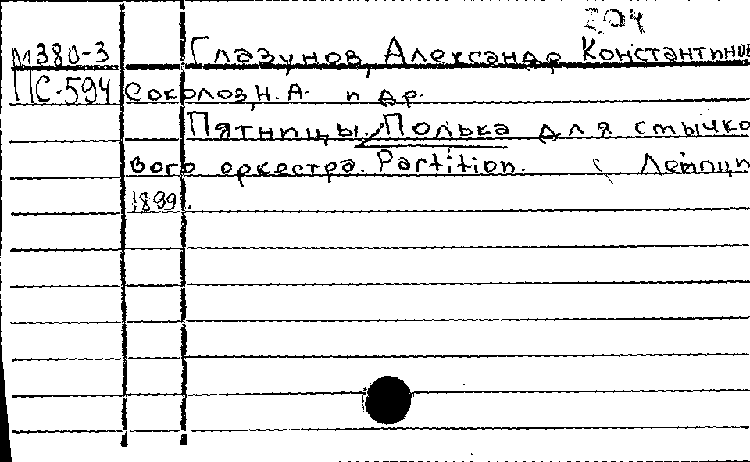 204
М380-3 Глазунов, Александр Константинов
ПС-594 Соколов, Н. А. и др.
Пятницы. Полька для смычко
вого оркестра. Partition. Лейпци
1899.